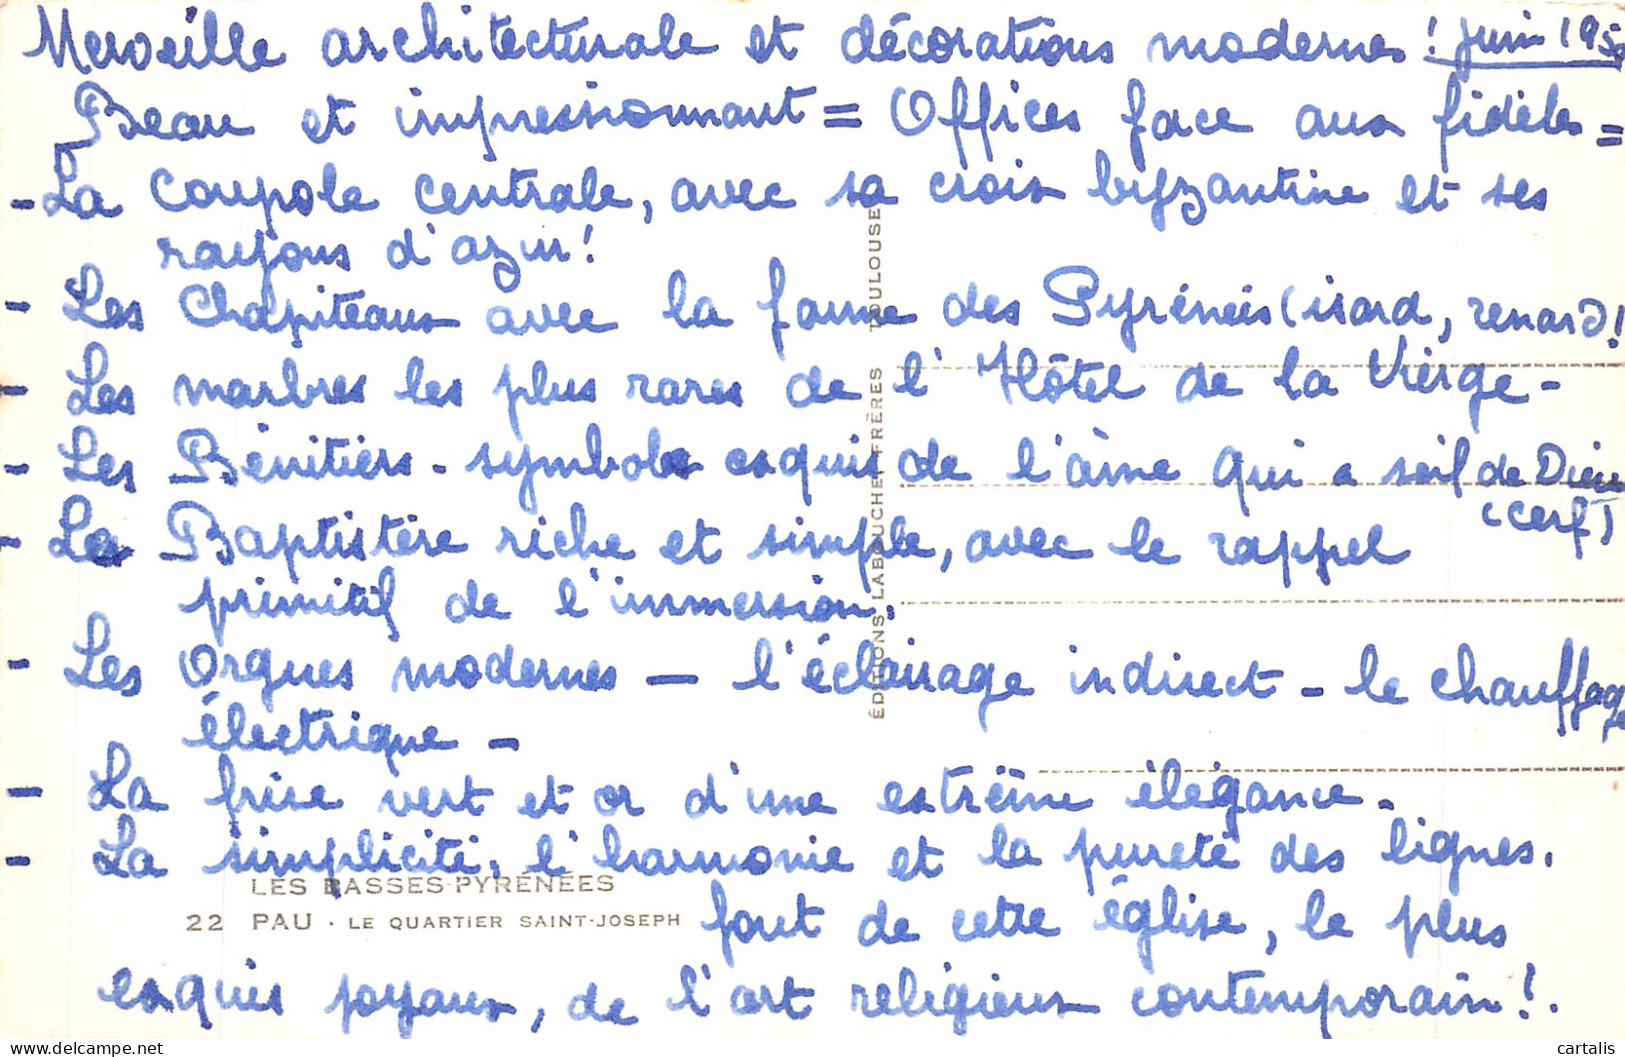 Merveille architecturale et décorations modernes ! Juin 195
Beau et impressionnant = Offices face aux fidèles =
- La Coupole centrale, avec sa croix byzantine et ses
rayons d'azur !
- Les Chapiteaux avec la faune des Pyrénées (isard, renard)!
- Les marbres les plus rares de l'Hôtel de la Vierge -
- Les Bénitiers - symbole exquis de l'âme qui a soif de Dieu
(cerf)
- Le Baptistère riche et simple, avec le rappel
primitif de l'immersion.
- Les Orgues modernes — l'éclairage indirect - le chauffage
électrique -
- La frise vert et or d'une extrême élégance -
- La simplicité, l'harmonie et la pureté des lignes.
font de cette église, le plus
exquis joyaux, de l'art religieux contemporain !.
LES BASSES-PYRÉNÉES
22 PAU · LE QUARTIER SAINT-JOSEPH
ÉDITIONS LABOUCHE FRÈRES TOULOUSE
cartalis